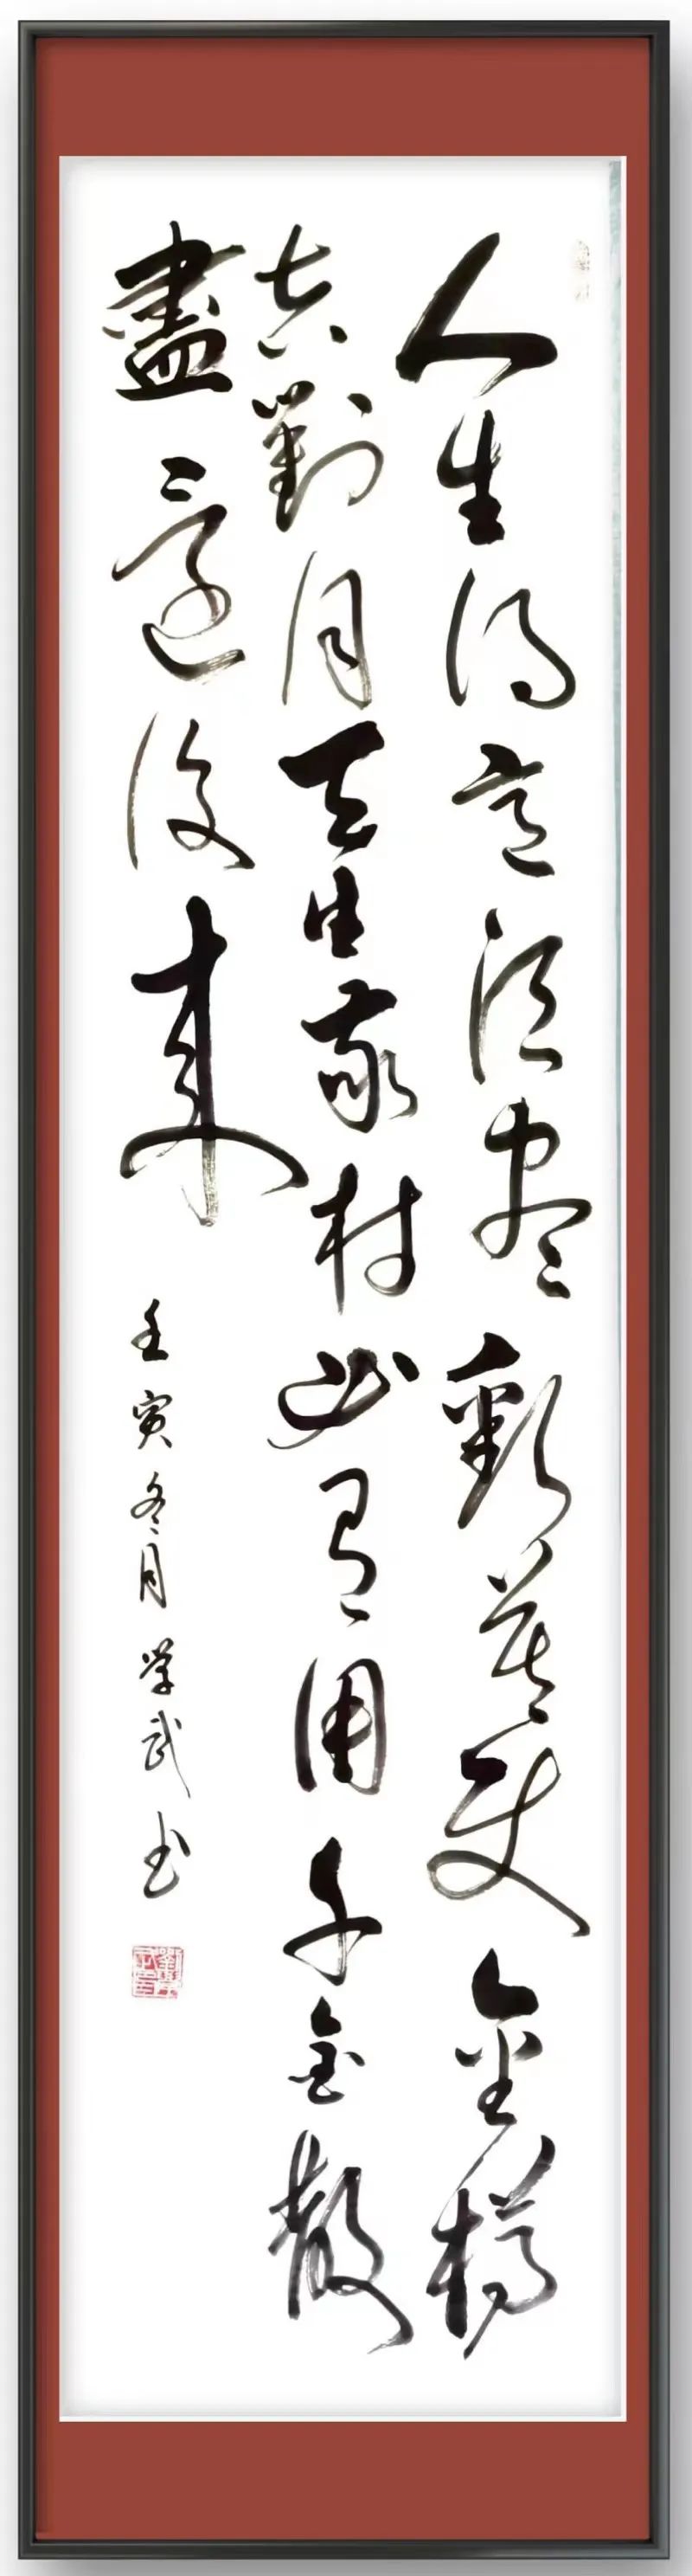 人生得意須盡歡莫使金樽
空對月天生我材必有用千金散
盡還復來
壬寅冬月学武书